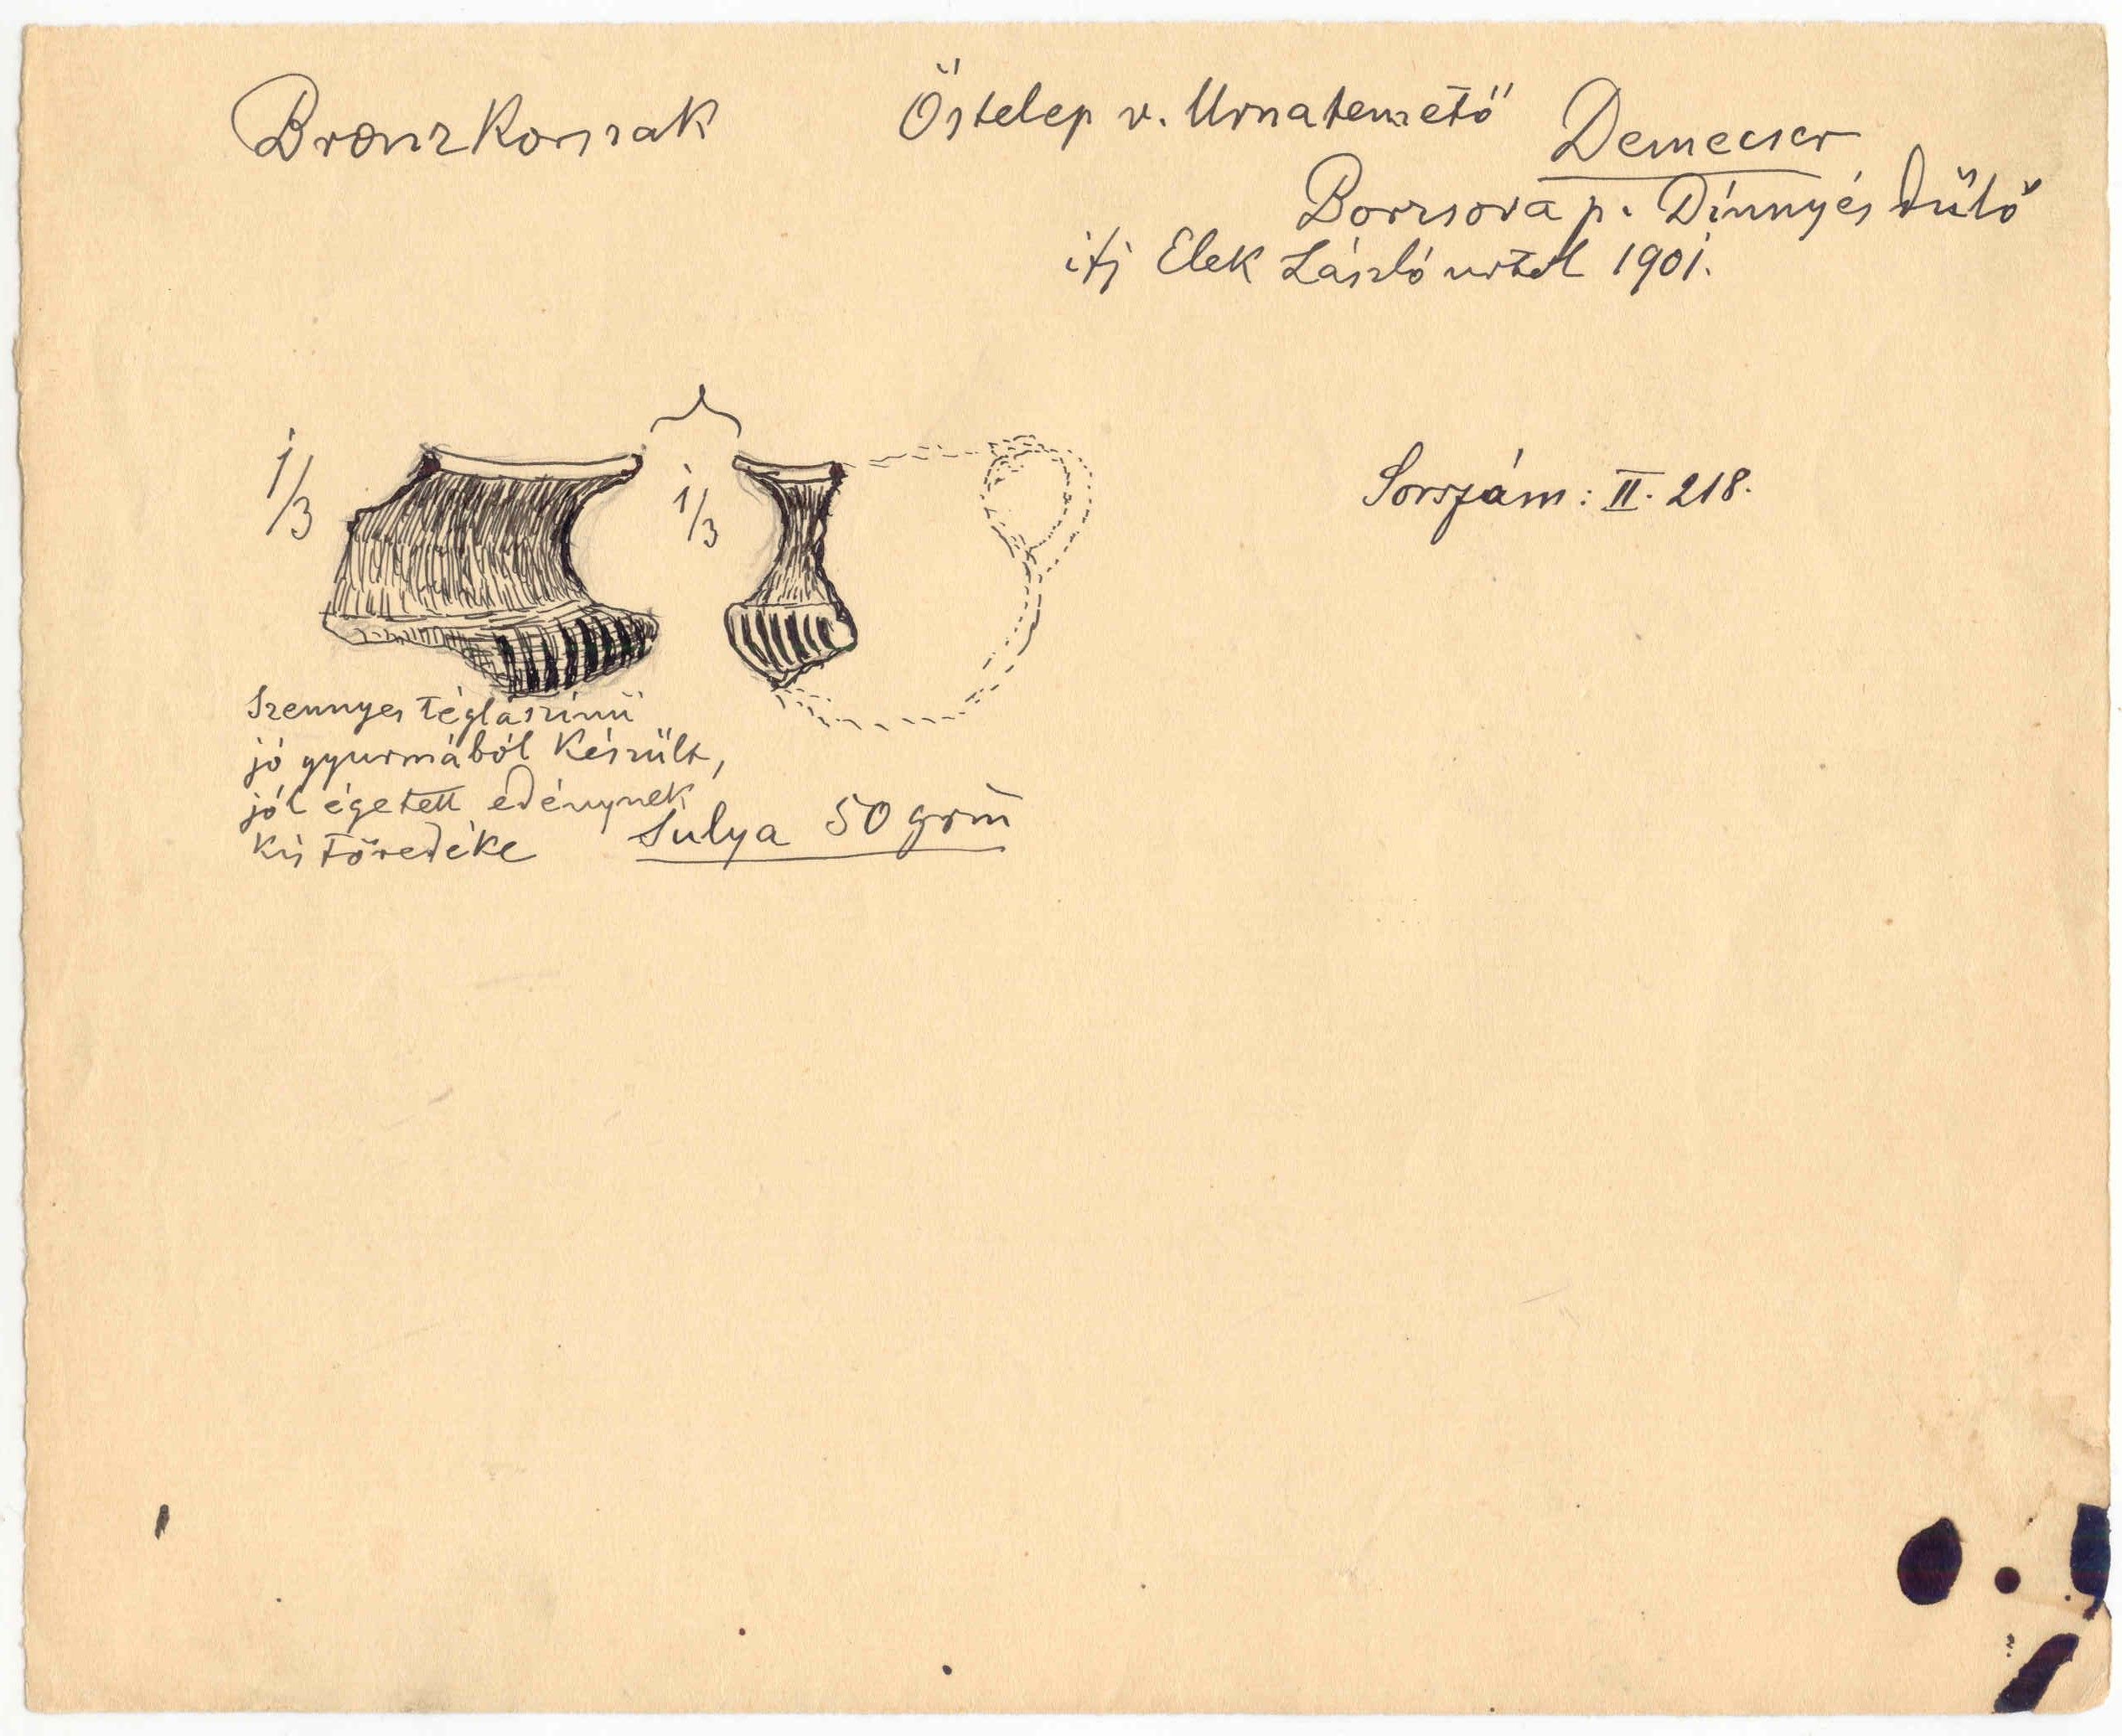 Bronzkorszak
Őstelep v. Urnatemető Demecser
Borzsova p. Dinnyés dűlő
ifj Elek László urtól 1901.
1/3
1/3
Sorszám: II. 218.
Szennyes téglaszinü
jó gyurmából készült,
jól égetett edénynek
kis töredéke
Sulya 50 grm